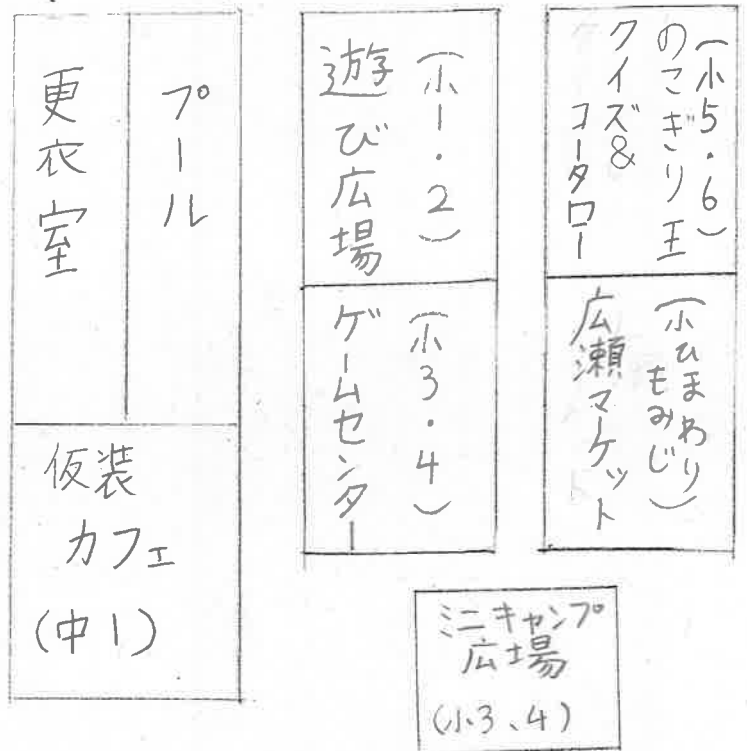 更衣室
プール
仮装
カフェ
(中1)
(小1・2)
遊び広場
(小3・4)
ゲームセンター
(小5・6)
のこぎり王
クイズ&
コータロー
(小ひまわり
もみじ)
広瀬マーケット
ミニキャンプ
広場
(小3、4)